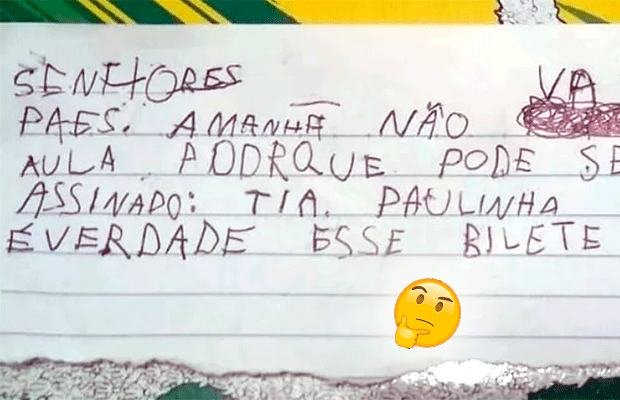 SENHORES VA
PAES. AMANHÃ NÃO
AULA PODRQUE PODE SE
ASSINADO: TIA. PAULINHA
ÉVERDADE ESSE BILETE